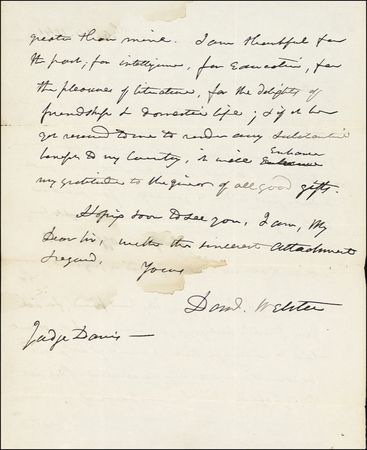 greater than mine. I am thankful for
the past; for intelligence, for Education, for
the pleasures of literature, for the delights of
friendship & Domestic life; & if it be
yet reserved to me to render any substantial
Enhance
benefit to my Country, it will Enhance
my gratitude to the giver of all good gifts.
Hoping soon to see you, I am, My
Dear Sir, with the sincerest attachment
& regard,
Yours
Danl. Webster
Judge Davis —